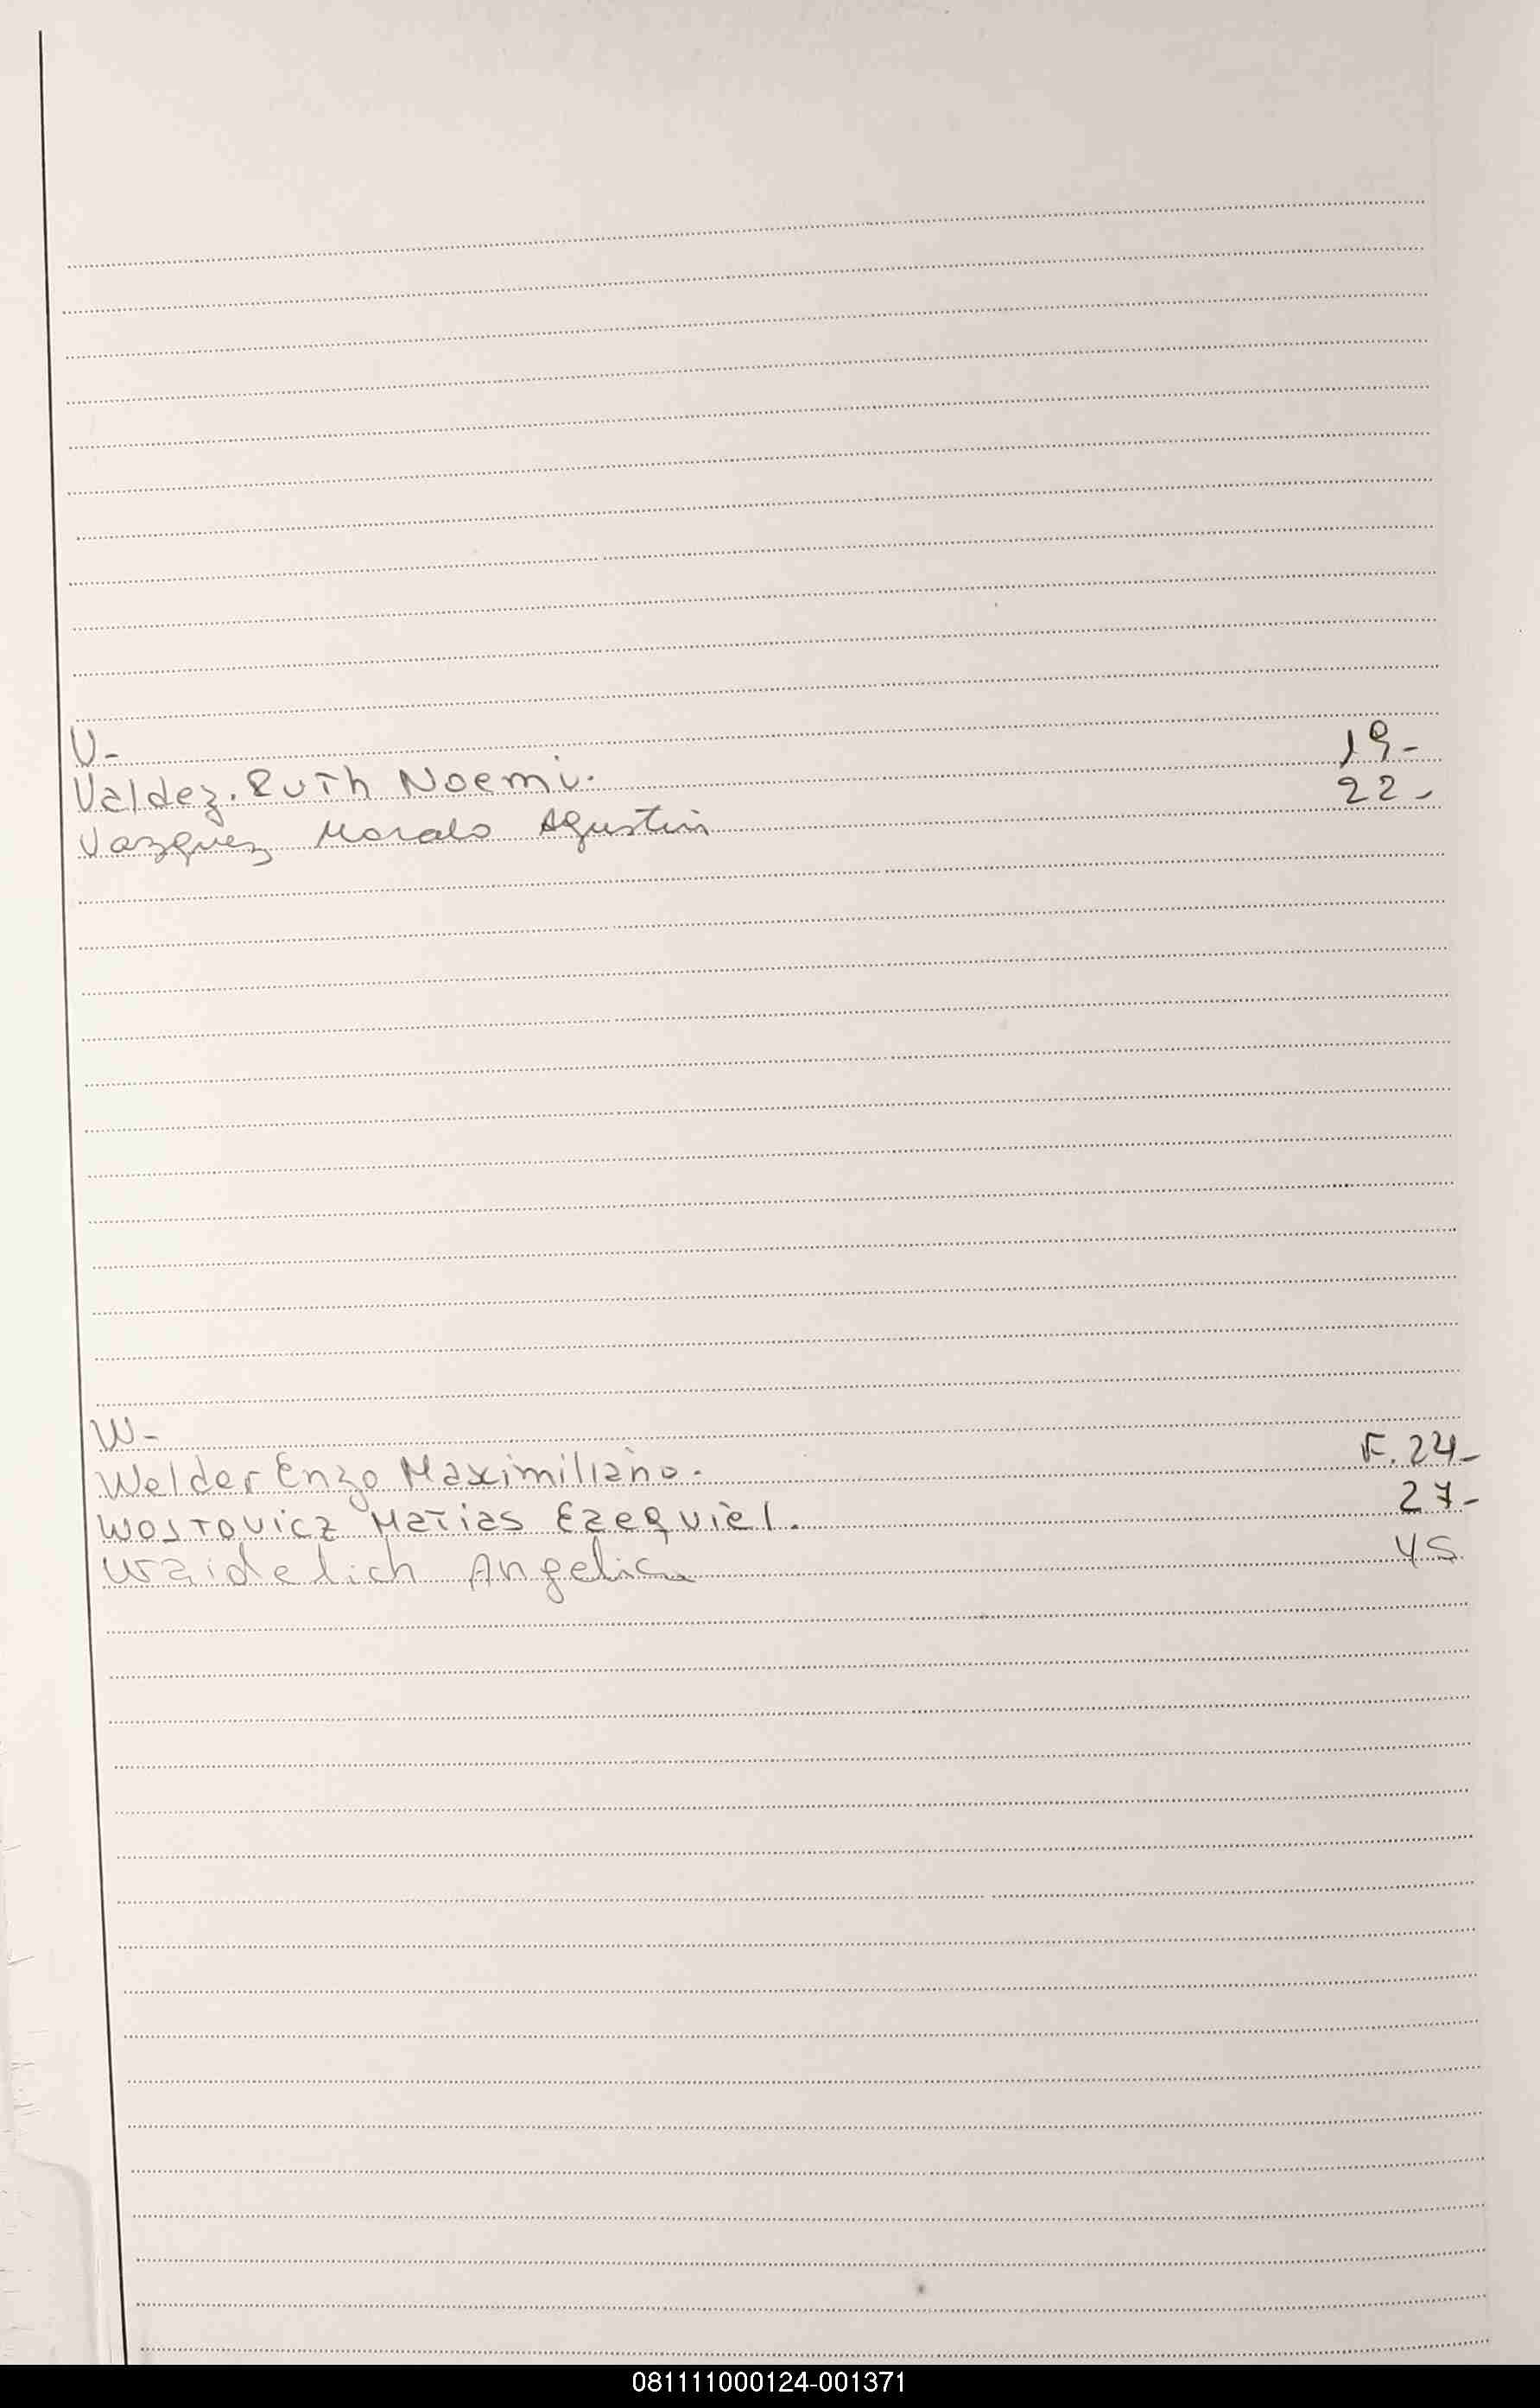 V-
Valdez. Ruth Noemi. 19-
Vazquez Agustin 22-
W-
Welder Enzo Maximiliano. F. 24-
Wostovicz Matias Ezequiel. 27-
Waidelich Angelica 45
081111000124-001371